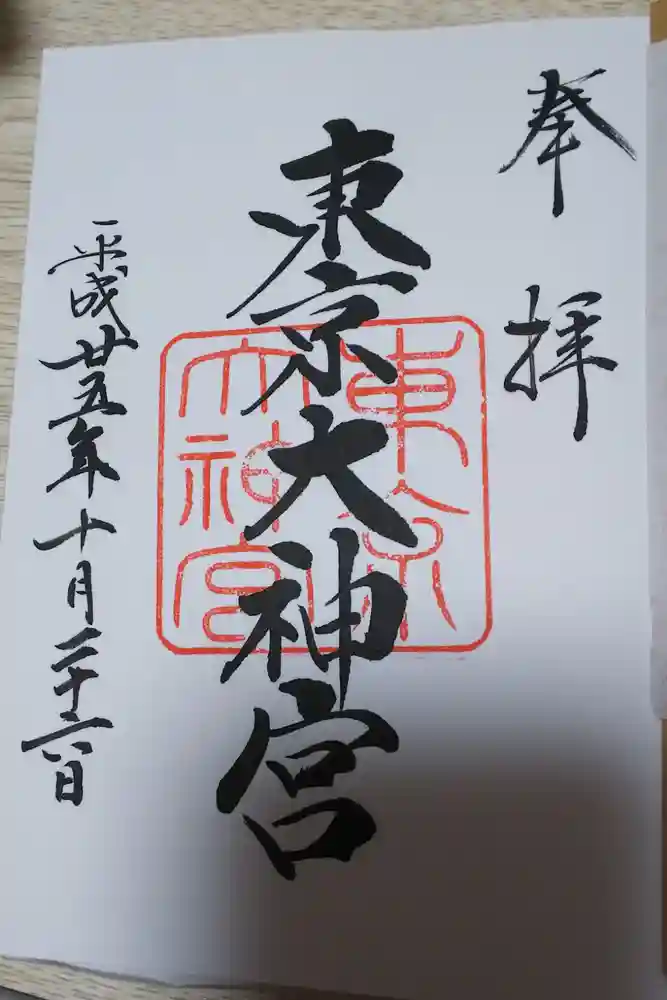 奉拝
東京大神宮
東京大神宮
平成廿五年十月二十六日